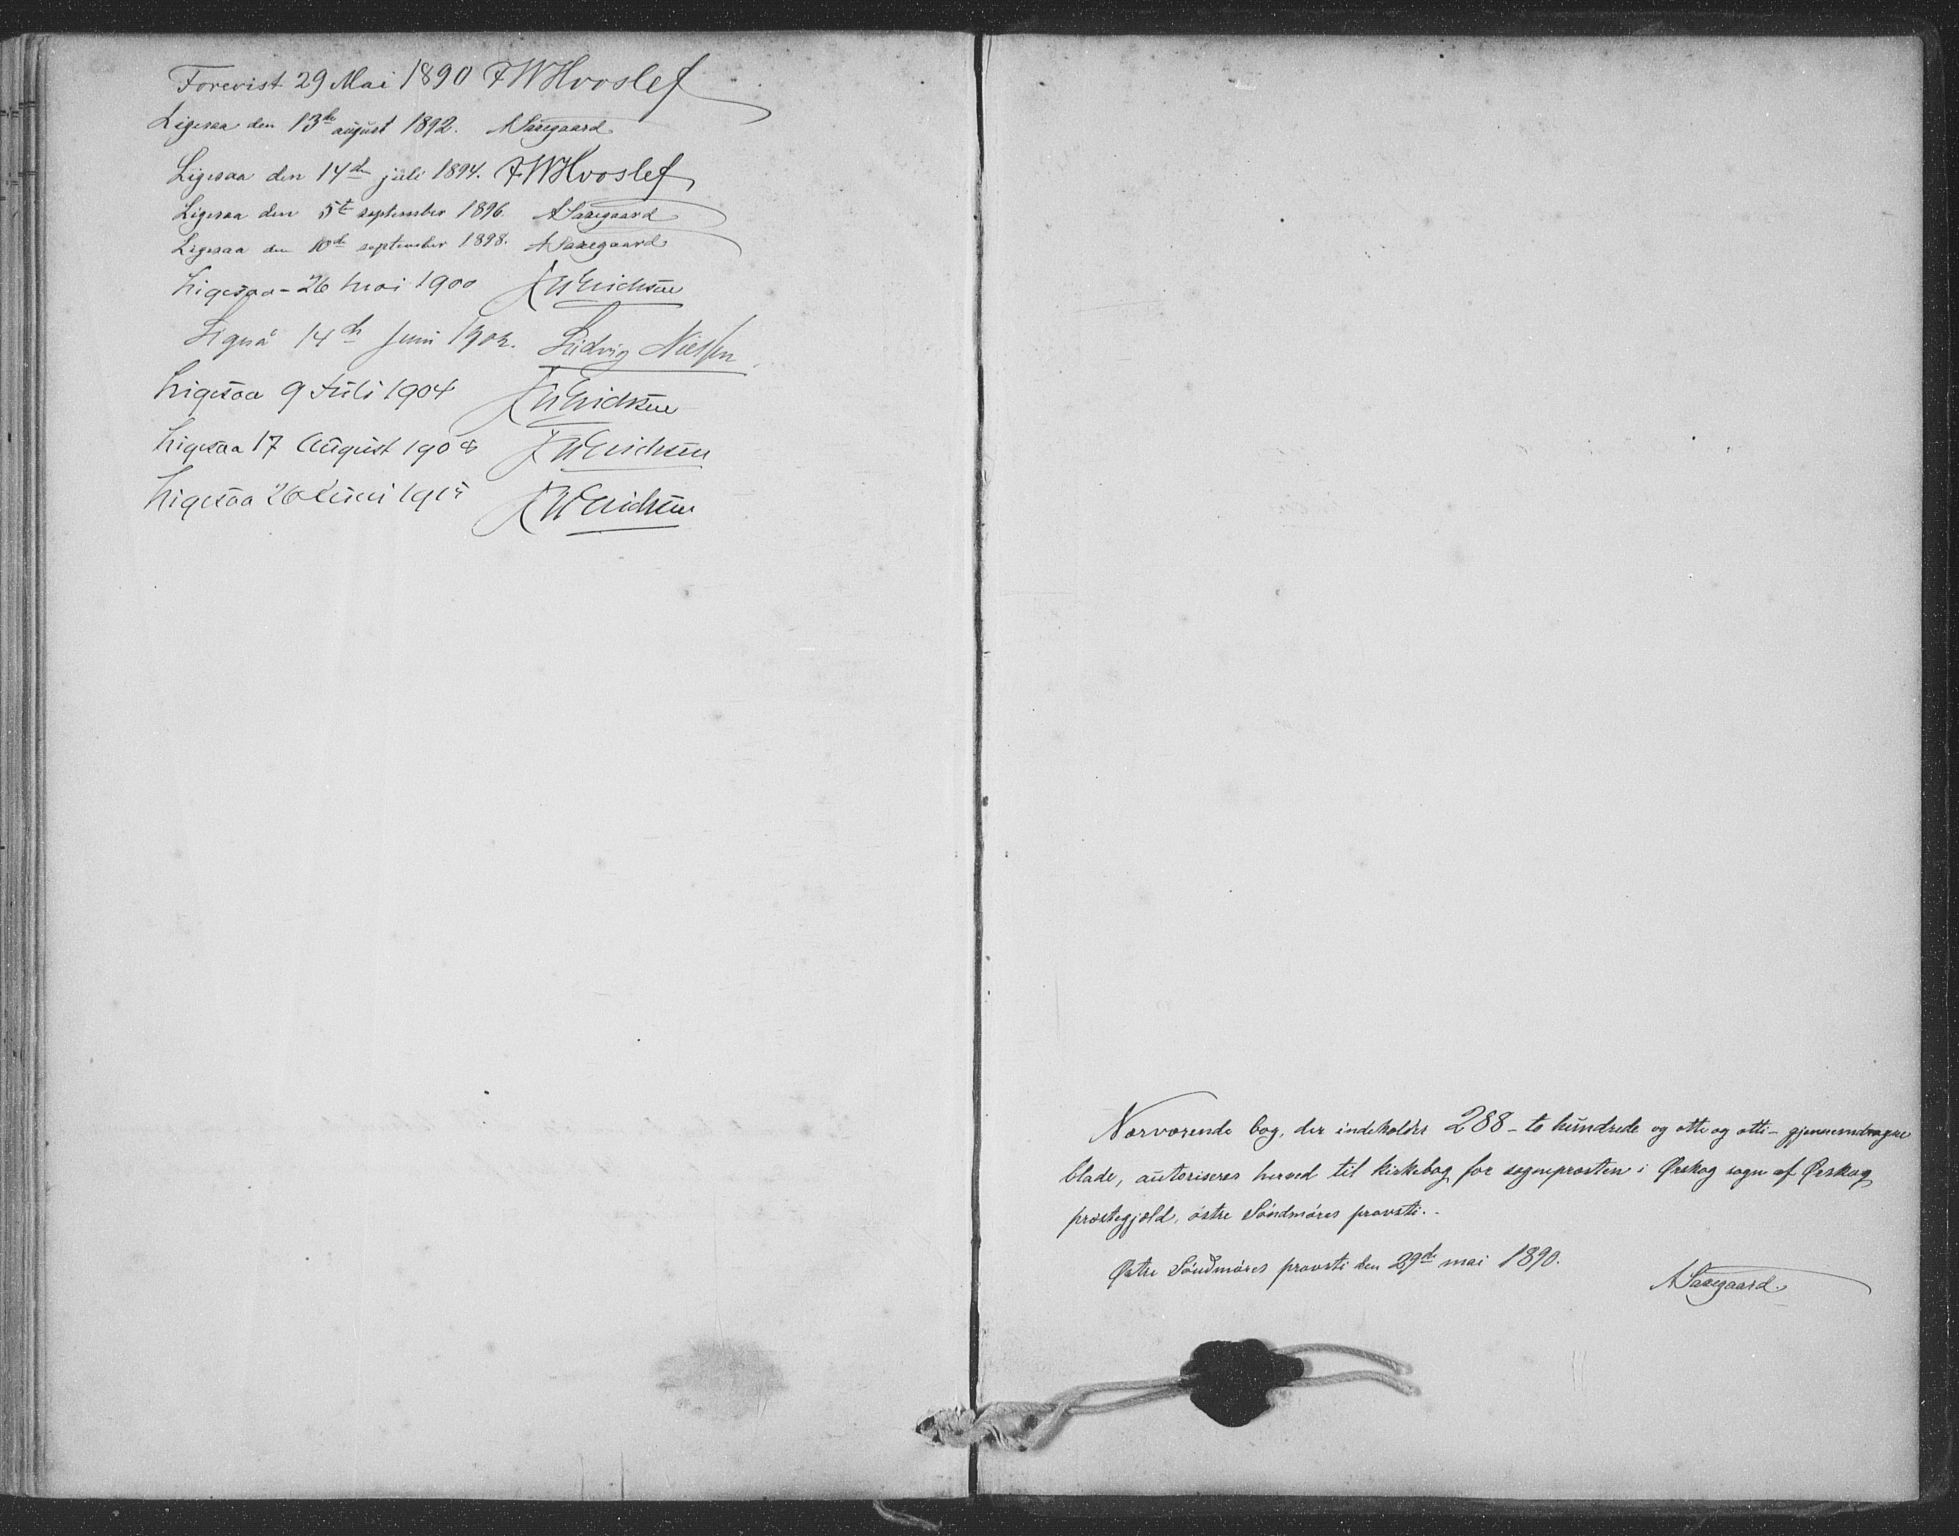 Forevist 29 Mai 1890 FWHvoslef
Ligesaa den 13de august 1892. ASaxegaard
Ligesaa den 14de juli 1894. FWHvoslef
Ligesaa den 5te september 1896. ASaxegaard
Ligesaa den 10de september 1898. ASaxegaard
Ligesaa - 26 Mai 1900 Erichsen
Ligeså 14de Juni 1902. Ludvig
Ligesaa 9 Juli 1904 Erichsen
Ligesaa 17 August 1908 Erichsen
Ligesaa 26 Juni Erichsen
Nærværende bog, der indeholder 288 - to hundrede og otte og otti - gjennemdragne
blade, autoriseres herved til kirkebog for sognepræsten i Ørskog sogn af Ørskog
præstegjæld, østre Søndmøres provsti.
Østre Søndmøres provsti den 29de mai 1890.
ASaxegaard.